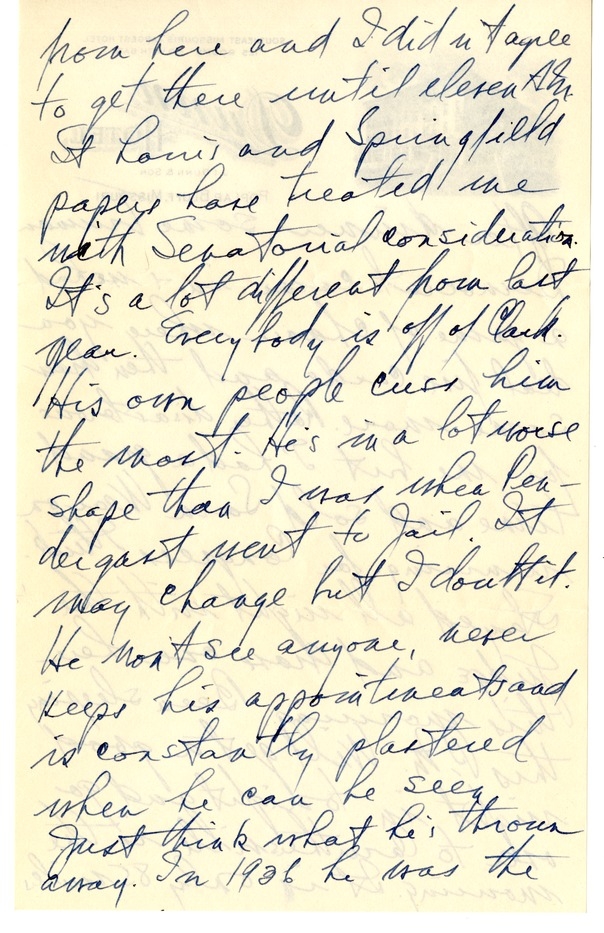 from here and I didn't agree
to get there until eleven A.M.
St Louis and Springfield
papers have treated me
with Senatorial consideration.
It's a lot different from last
year. Everybody is off of Clark.
His own people cuss him
the most. He's in a lot worse
shape than I was when Pen-
dergast went to Jail. It
may change but I doubt it.
He won't see anyone, never
keeps his appointments and
is constantly plastered
when he can be seen.
Just think what he's thrown
away. In 1936 he was the